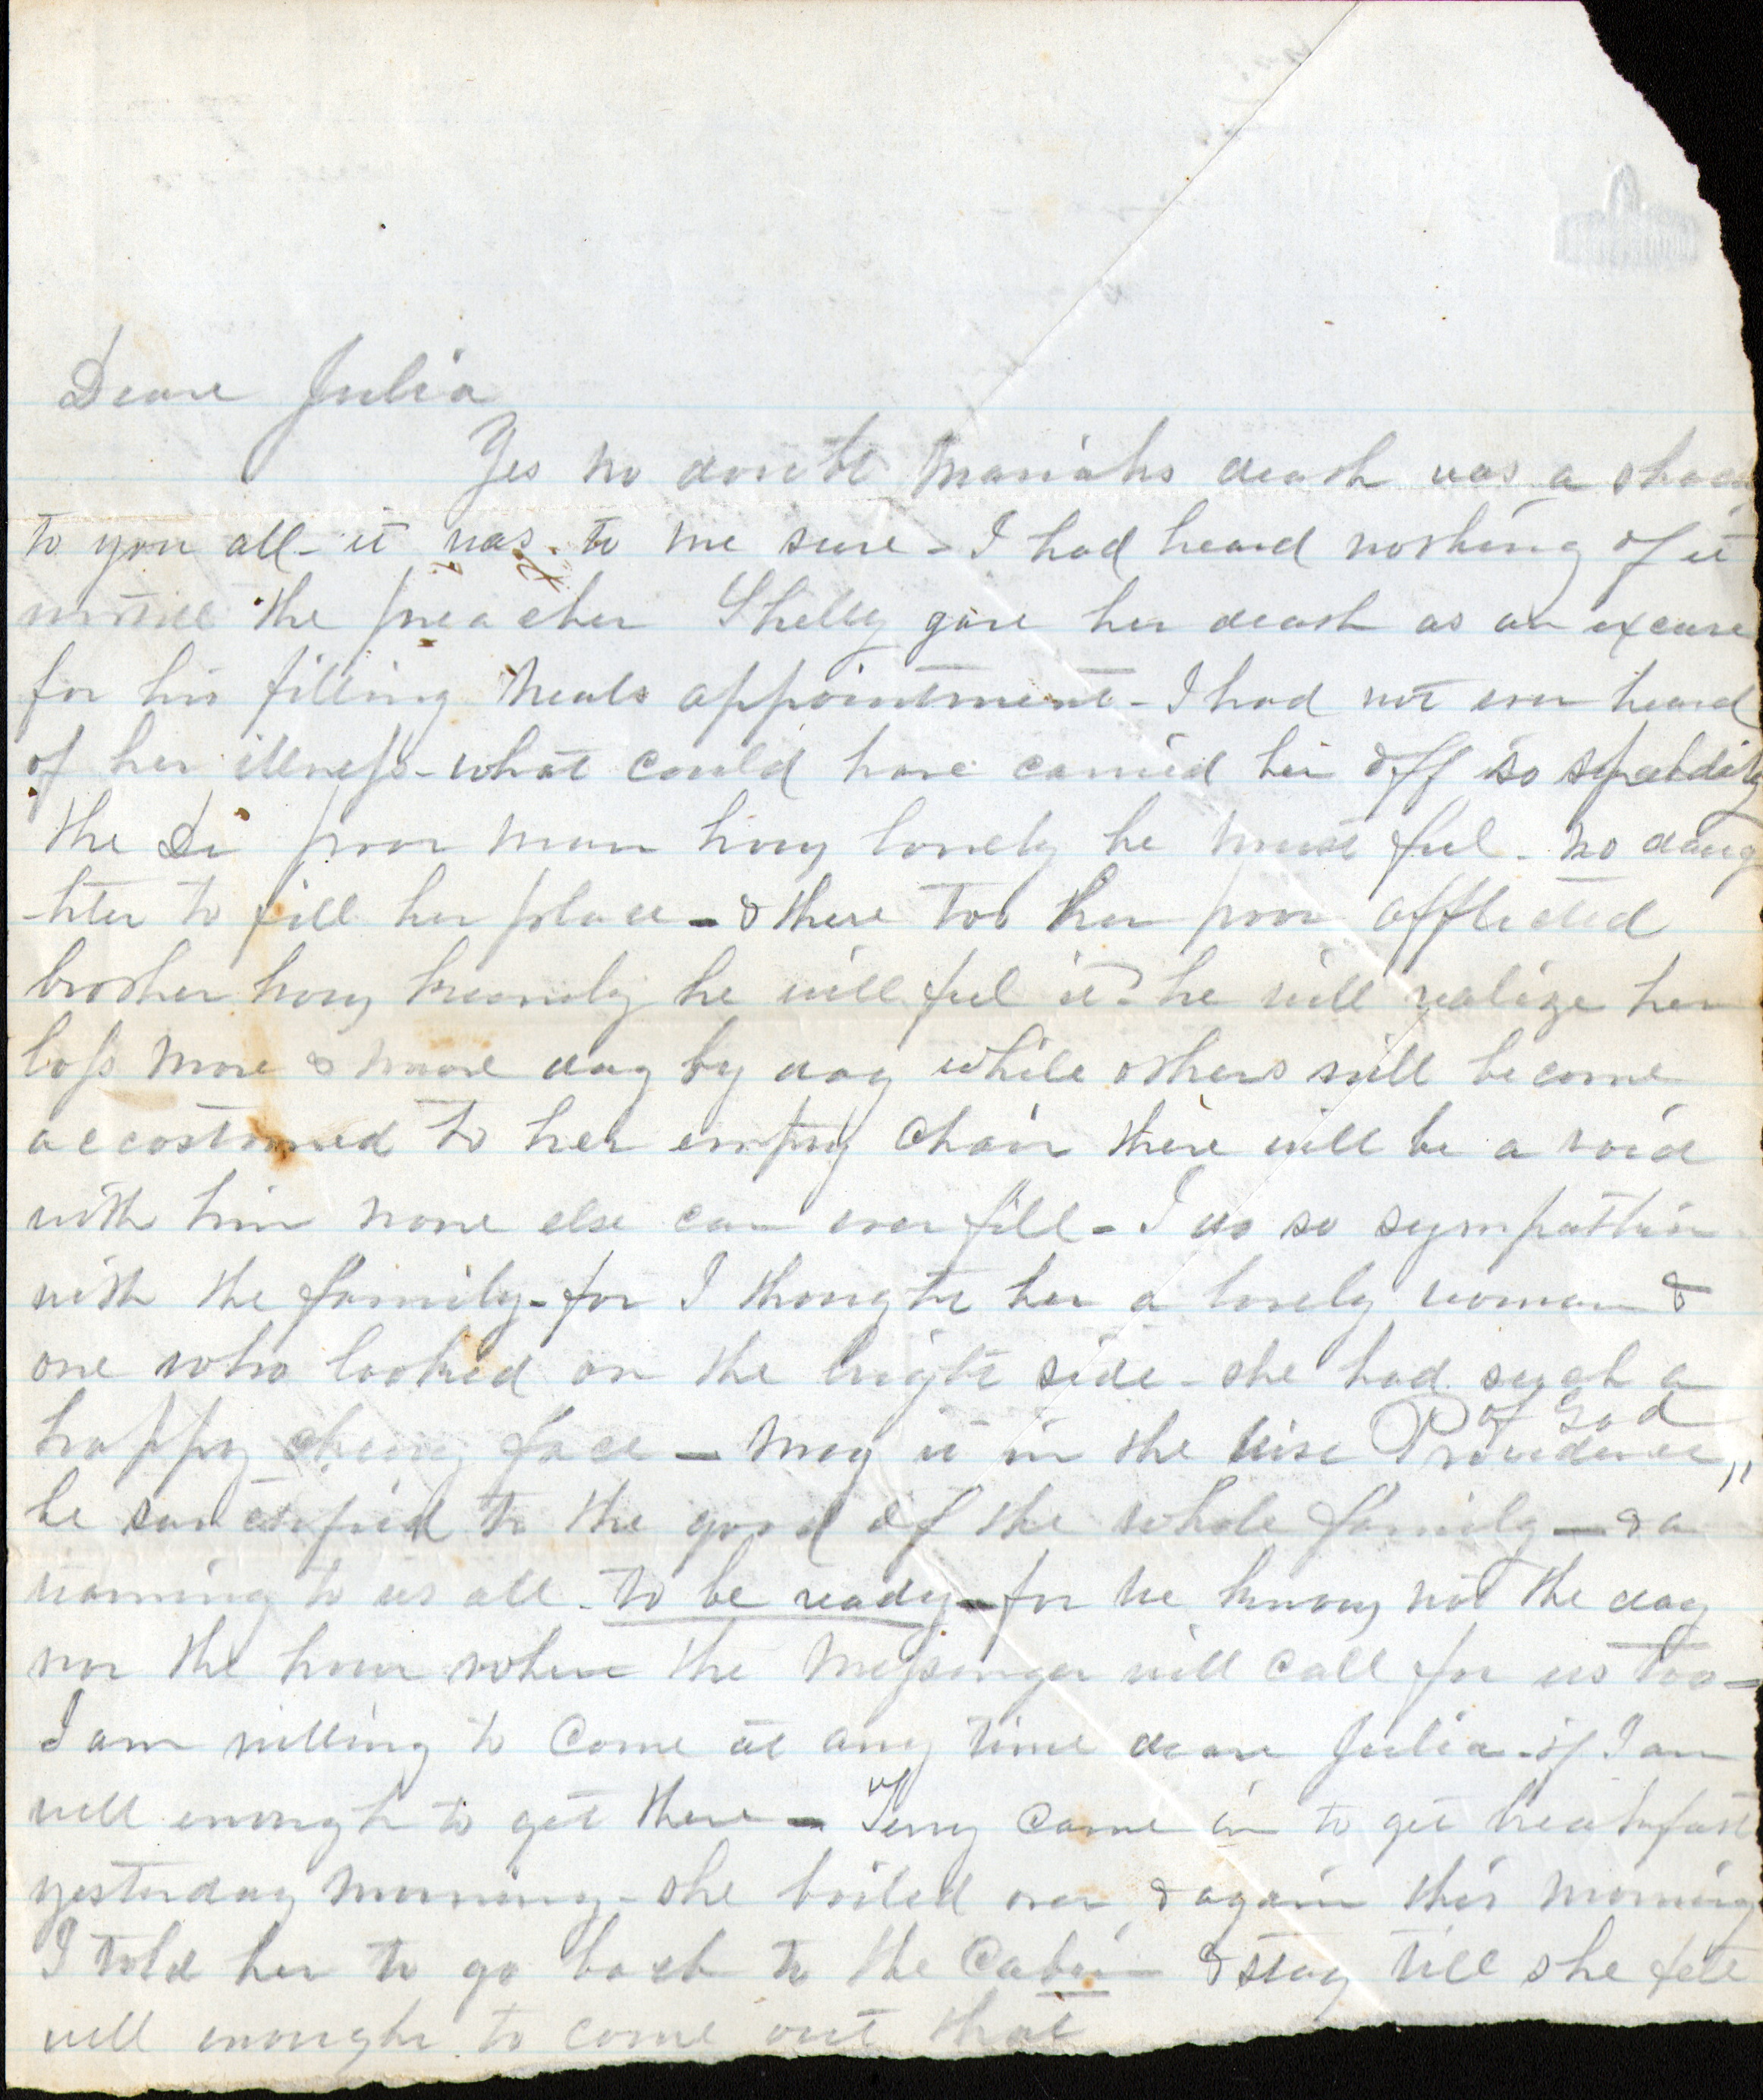 Deare Julia
Yes no doubt Mariahs death was a shock
to you all - it was to me sure - I had heard nothing of it
untill the preacher Shelly gave her death as an excuse
for his filling Neals appointment - I had not even heard
of her illness - what could have carried her off so speedily
the Dr poor man how lonely he must feel - no daug
-hter to fill her place - & there too her poor afflicted
brother how keenly he will feel it - he will realize her
loss more & more day by day while others will become
accostomed to her empty chair there will be a void
with him none else can ever fill - I do so sympathize
with the family - for I thought her a lovely woman &
one who looked on the bright side - she had such a
happy cheery face - may it in the wise Providence of God
be sanctified to the good of the whole family - & a
warning to us all - to be ready - for we know not the day
nor the hour when the messenger will call for us too -
I am willing to come at any time deare Julia - if I am
well enough to get there - came in to get breakfast
yesterday morning - she boiled over & again this morning
I told her to go back to the Cabin & stay till she felt
well enough to come out that